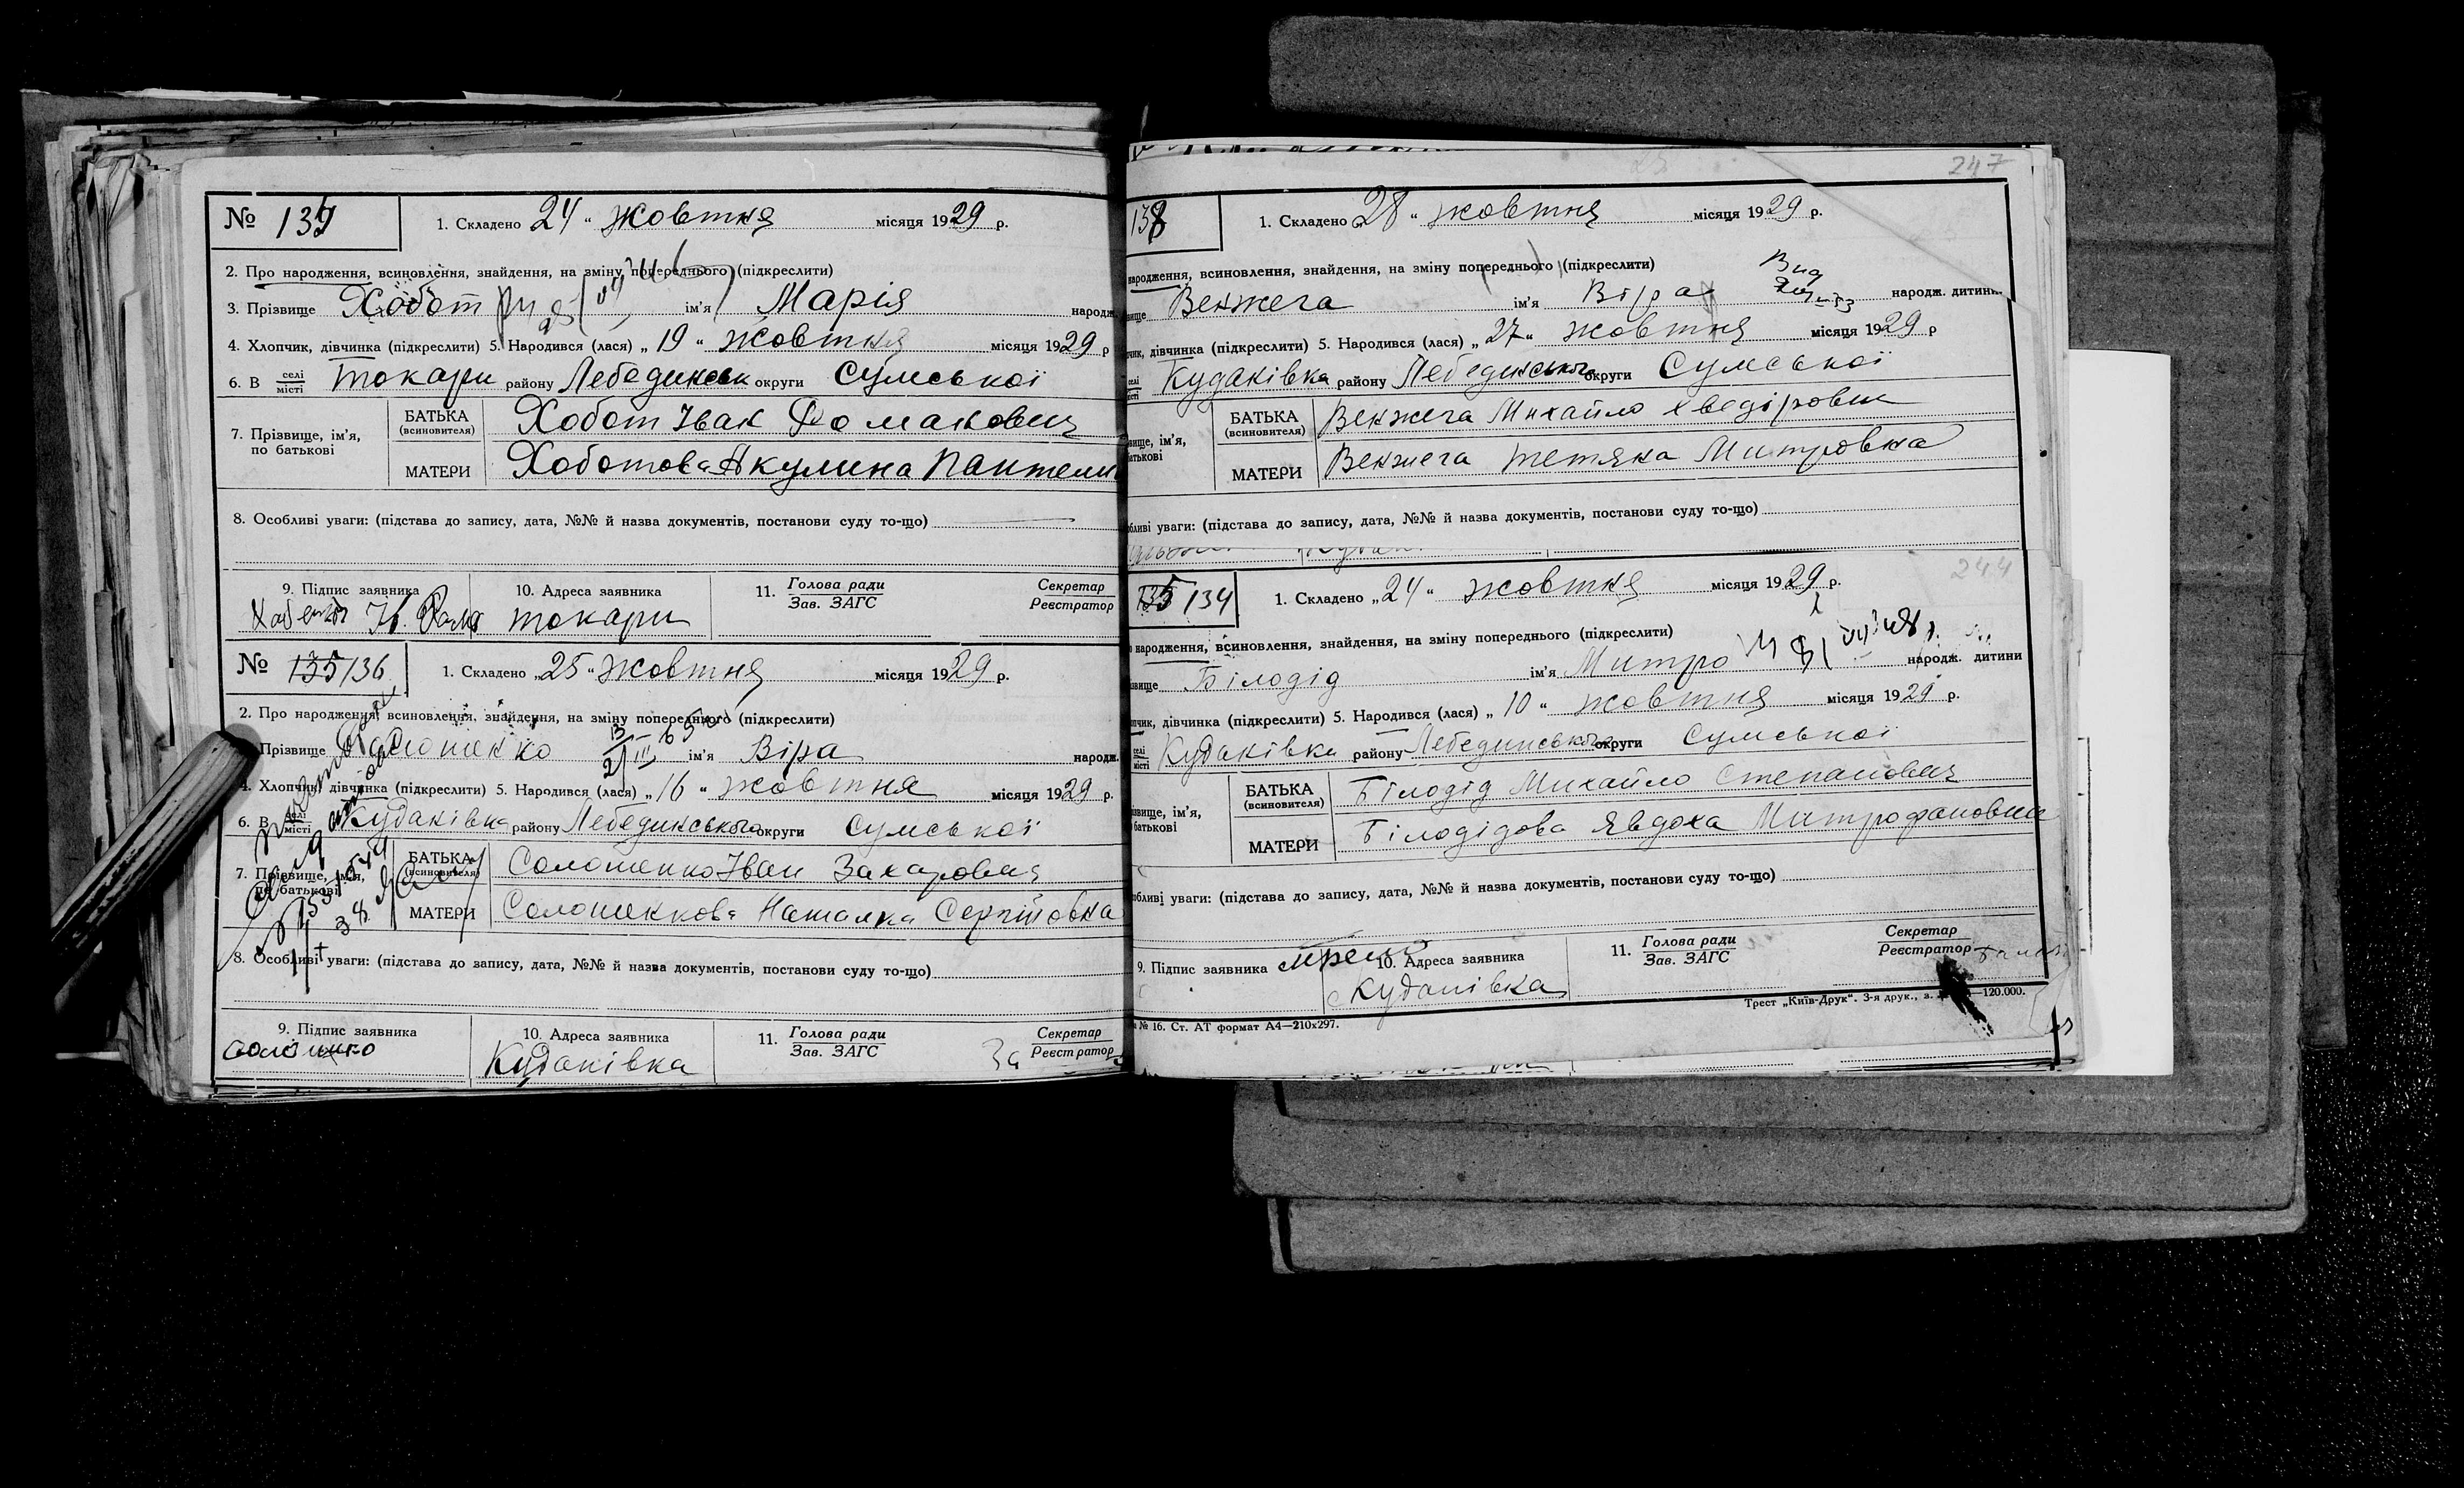 № 137
1. Складено 24 " жовтня місяця 1929 р.
2. Про народження, всиновлення, знайдення, на зміну попереднього (підкреслити)
3. Прізвище Хобот ім'я Марія народж.
4. Хлопчик, дівчинка (підкреслити) 5. Народився (лася) „ 19 " жовтня місяця 1929 р
6. В селі місті Токари району Лебединськ округи Сумської
7. Прізвище, ім'я, по батькові
БАТЬКА (всиновителя) Хобот Іван Романович
МАТЕРИ Хоботова Акулина Пантели
8. Особливі уваги: (підстава до запису, дата, №№ й назва документів, постанови суду то-що)
9. Підпис заявника
10. Адреса заявника
11. Голова ради Зав. ЗАГС
Секретар Реєстратор
Токари
№ 135/136
1. Складено „25 " жовтня місяця 1929 р.
2. Про народження, всиновлення, знайдення, на зміну попереднього (підкреслити)
Прізвище Солошенко ім'я Віра народж.
4. Хлопчик, дівчинка (підкреслити) 5. Народився (лася) „ 16 " жовтня місяця 1929 р.
6. В селі місті Кудаківка району Лебединського округи Сумської
7. Прізвище, ім'я, по батькові
БАТЬКА (всиновителя) Солошенко Іван Захарович
МАТЕРИ Солошенкова Наталка Сергіївка
8. Особливі уваги: (підстава до запису, дата, №№ й назва документів, постанови суду то-що)
9. Підпис заявника
10. Адреса заявника
11. Голова ради Зав. ЗАГС
За Секретар Реєстратор
Кудаківка
247
138
1. Складено „28 " жовтня місяця 1929 р.
народження, всиновлення, знайдення, на зміну попереднього (підкреслити)
вище Венжега ім'я Віра народж. дитини
чик, дівчинка (підкреслити) 5. Народився (лася) „ 27 " жовтня місяця 1929 р
селі місті Кудаківка району Лебединського округи Сумської
вище, ім'я, батькові
БАТЬКА (всиновителя) Венжега Михайло Хведірович
МАТЕРИ Венжега Тетяна Митровна
бливі уваги: (підстава до запису, дата, №№ й назва документів, постанови суду то-що)
244
135/134
1. Складено „24 " жовтня місяця 1929 р.
народження, всиновлення, знайдення, на зміну попереднього (підкреслити)
звище Білодід ім'я Митро народж. дитини
пчик, дівчинка (підкреслити) 5. Народився (лася) „ 10 " жовтня місяця 1929 р.
селі місті Кудаківка району Лебединського округи Сумської
звище, ім'я, батькові
БАТЬКА (всиновителя) Білодід Михайло Степанович
МАТЕРИ Білодідова Явдоха Митрофановна
бливі уваги: (підстава до запису, дата, №№ й назва документів, постанови суду то-що)
9. Підпис заявника
10. Адреса заявника
11. Голова ради Зав. ЗАГС
Секретар Реєстратор
Кудаківка
Трест „Київ-Друк". 3-я друк., з. —120.000.
№ 16. Ст. АТ формат А4—210х297.